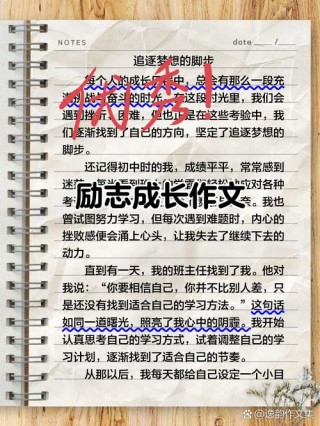 NOTES
date
追逐梦想的脚步
优秀!
每个人的成长历程中，总会有那么一段充
满挑战与奋斗的时光。在这段时光里，我们会
遇到挫折、困难，但也正是在这些考验中，我
们逐渐找到了自己的方向，坚定了追逐梦想的
脚步。
还记得初中时的我，成绩平平，常常感到
对各种
励志成长作文
我也
曾试图努力学习，但每次遇到难题时，内心的
挫败感便会涌上心头，让我失去了继续下去的
动力。
直到有一天，我的班主任找到了我。他对
我说：“你要相信自己，你并不比别人差，只
是还没有找到适合自己的学习方法。”这句话
如同一道曙光，照亮了我心中的阴霾。我开始
认真思考自己的学习方式，试着调整自己的学
习计划，逐渐找到了适合自己的节奏。
从那以后，我每天都给自己设定一个小目
@逸韵作文集